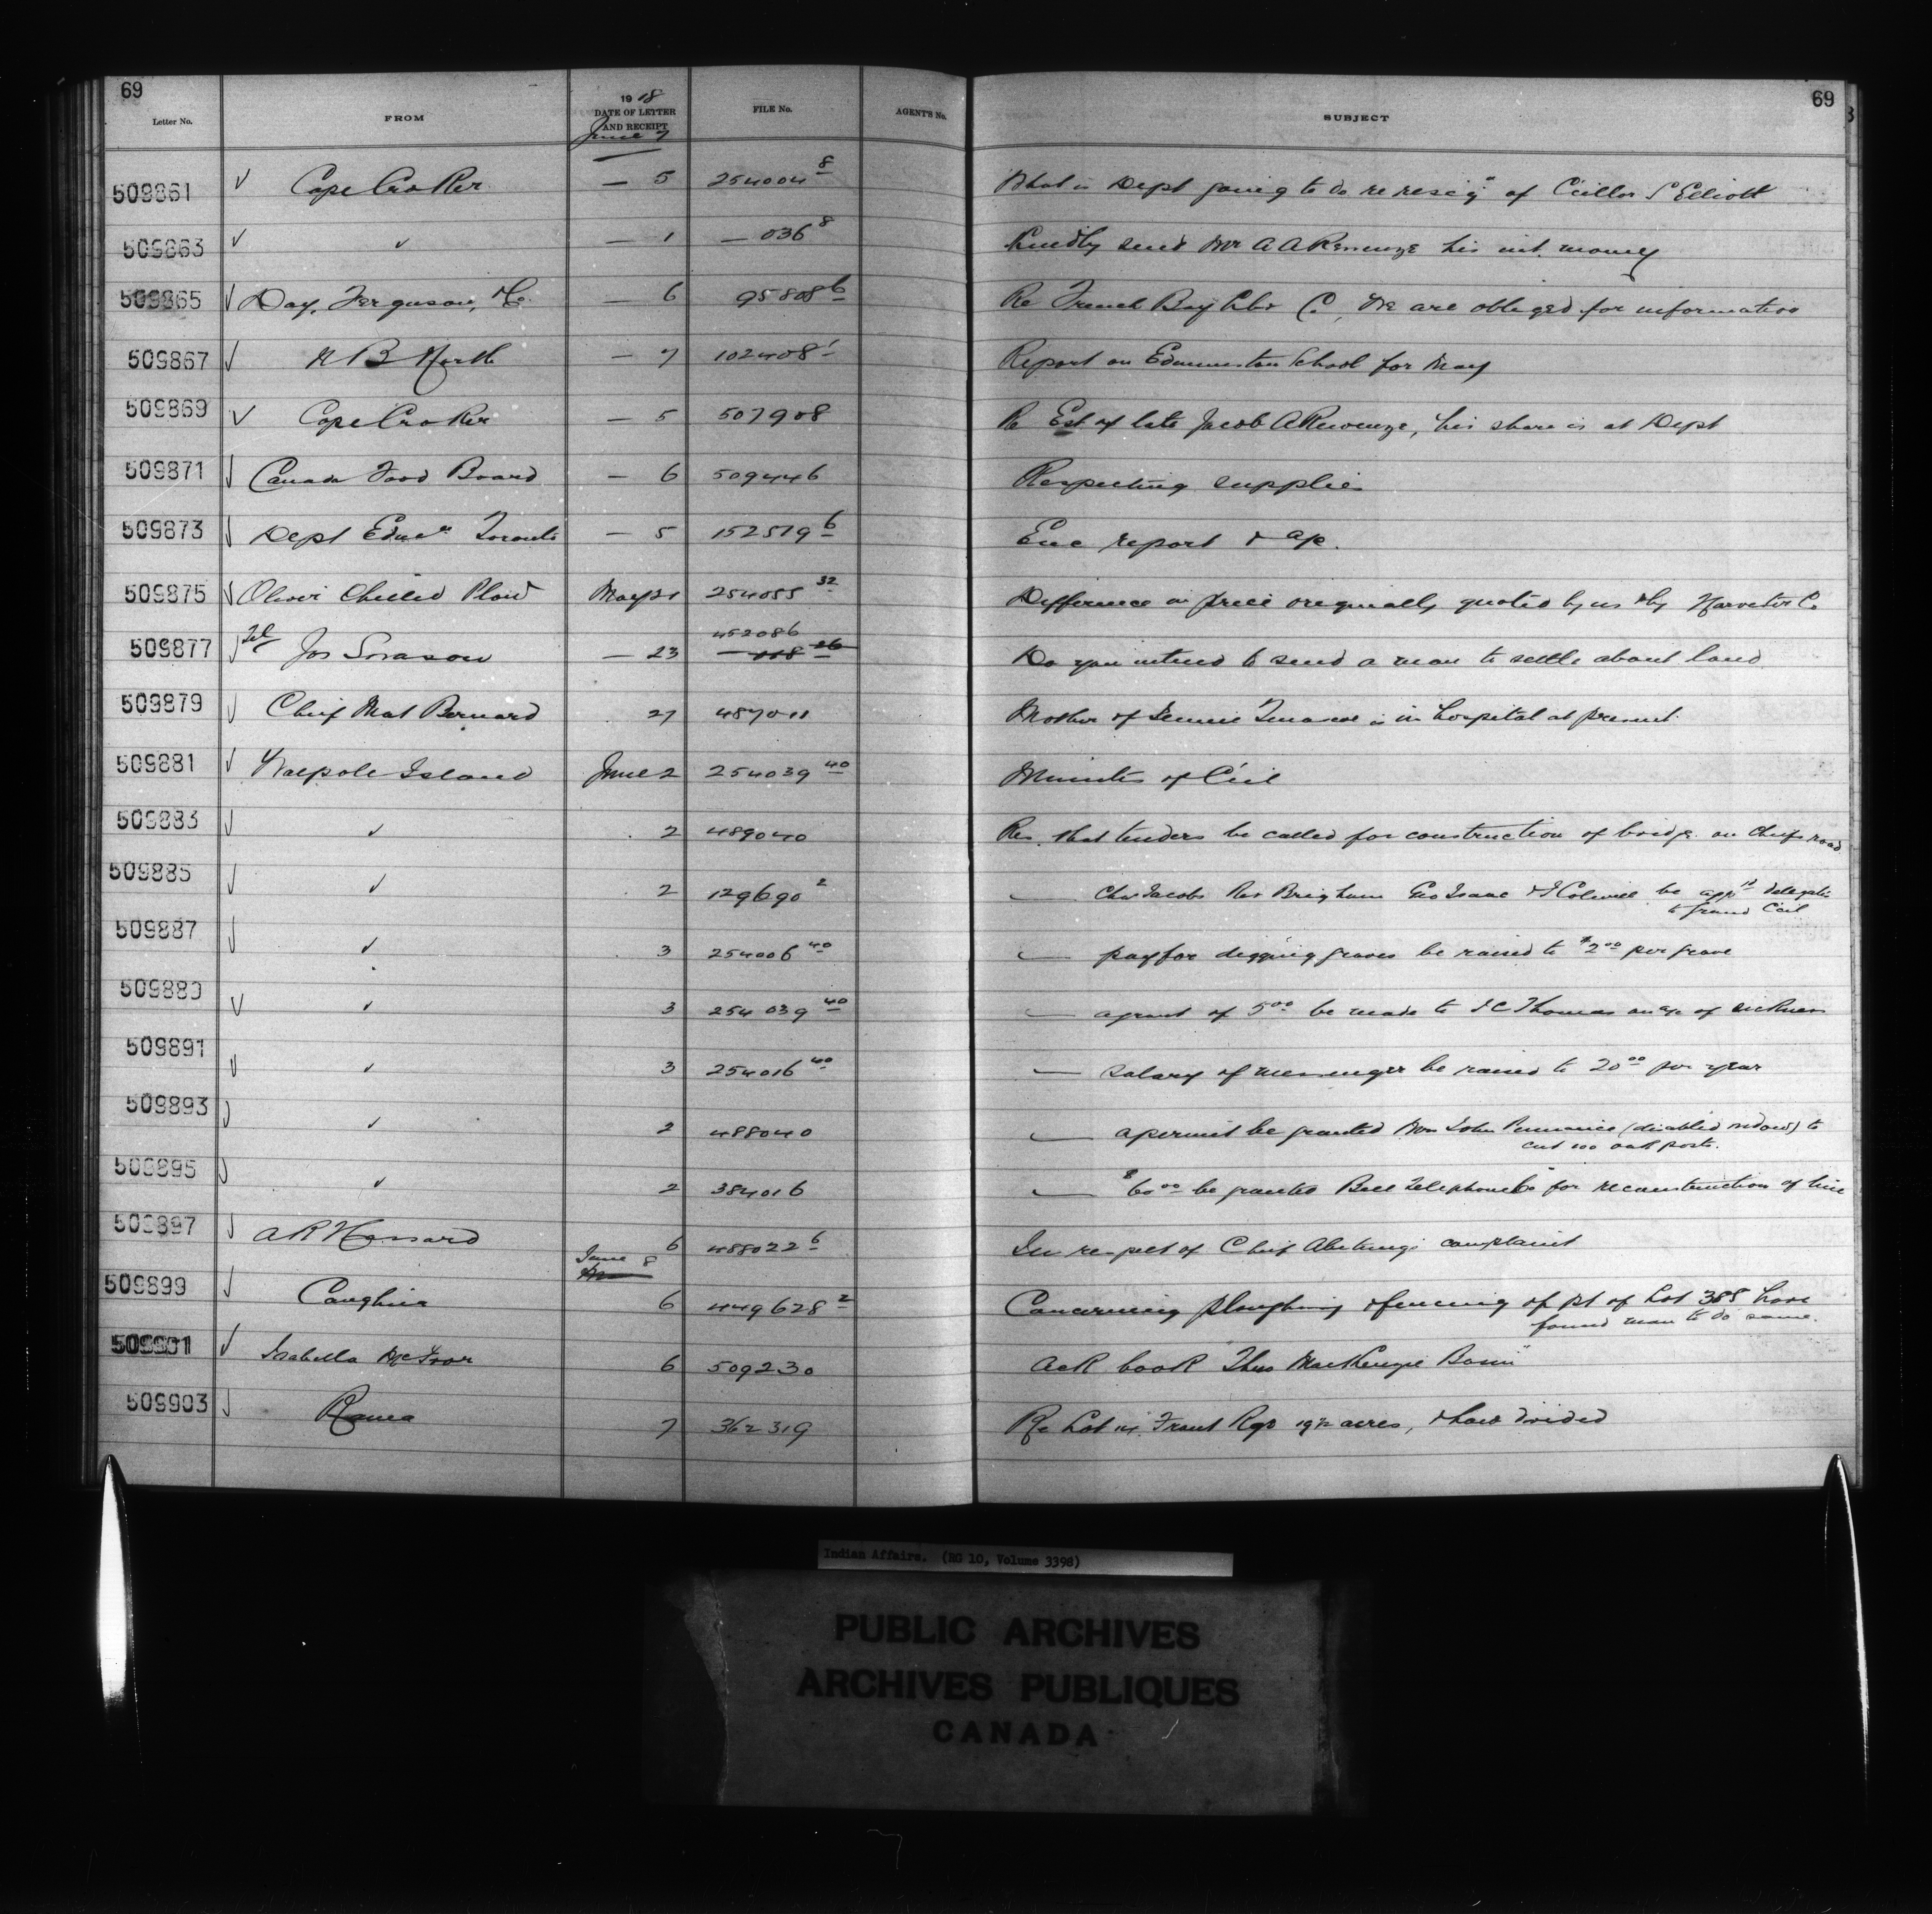 69
69
Letter No. FROM 1918 DATE OF LETTER AND RECEIPT FILE No. AGENT'S No. SUBJECT
June 7
509861 Cape Croker — 5 254004 8 What is Dept going to do re resig'n of Cíllor S Elliott
509863 " — 1 — 036 8 Kindly send Mr A Akewenze his int. money
509865 Day, Ferguson, & Co. — 6 95808 6 Re French Bay Co, We are obliged for information
509867 — 7 102408 1 Report on Edmunston School for May
509869 Cape Croker — 5 507908 Re Est of late Jacob Akewenze, his share is at Dept
509871 Canada Food Board — 6 509446 Respecting supplies
509873 Dept Educn Toronto — 5 152519 6 Enc report & a/c.
509875 Oliver Chilled Plow May 31 254055 32 Difference in price originally quoted by us & by Harvester Co
509877 Tel Jos — 23 452086 Do you intend to send a man to settle about land
509879 Chief Mat Bernard 27 487011 Mother of is in hospital at present
509881 Walpole Island June 2 254039 40 Minutes of C'cil
509883 " 2 489040 Res. that tenders be called for construction of bridge on Chiefs road
509885 " 2 129690 2 — Chas Jacobs Brigham Geo Isaac & be app'td delegates
to Grand C'cil
509887 " 3 254006 40 — pay for digging graves be raised to $2.00 per grave
509889 " 3 254039 40 — a grant of 5.00 be made to Thomas on a/c of sickness
509891 " 3 254016 40 — salary of messenger be raised to 20.00 per year
509893 " 2 488040 — a permit be granted Mrs John (disabled widow) to
cut 100 oak posts.
509895 " 2 384016 — $60.00 be granted Bell Telephone Co for reconstruction of line
509897 A R Hassard 6 488022 6 In respect of Chief complaint
June 8
509899 Caughnia 6 449628 2 Concerning ploughing & fencing of pt of Lot 388 have
found man to do same.
509901 Isabella McIvor 6 509230 Ack book "Thos MacKenzie Basin"
509903 Rama 7 362319 Re Lot 14 Front Rge 19½ acres, & how divided
Indian Affairs. (RG 10, Volume 3398)
PUBLIC ARCHIVES
ARCHIVES PUBLIQUES
CANADA